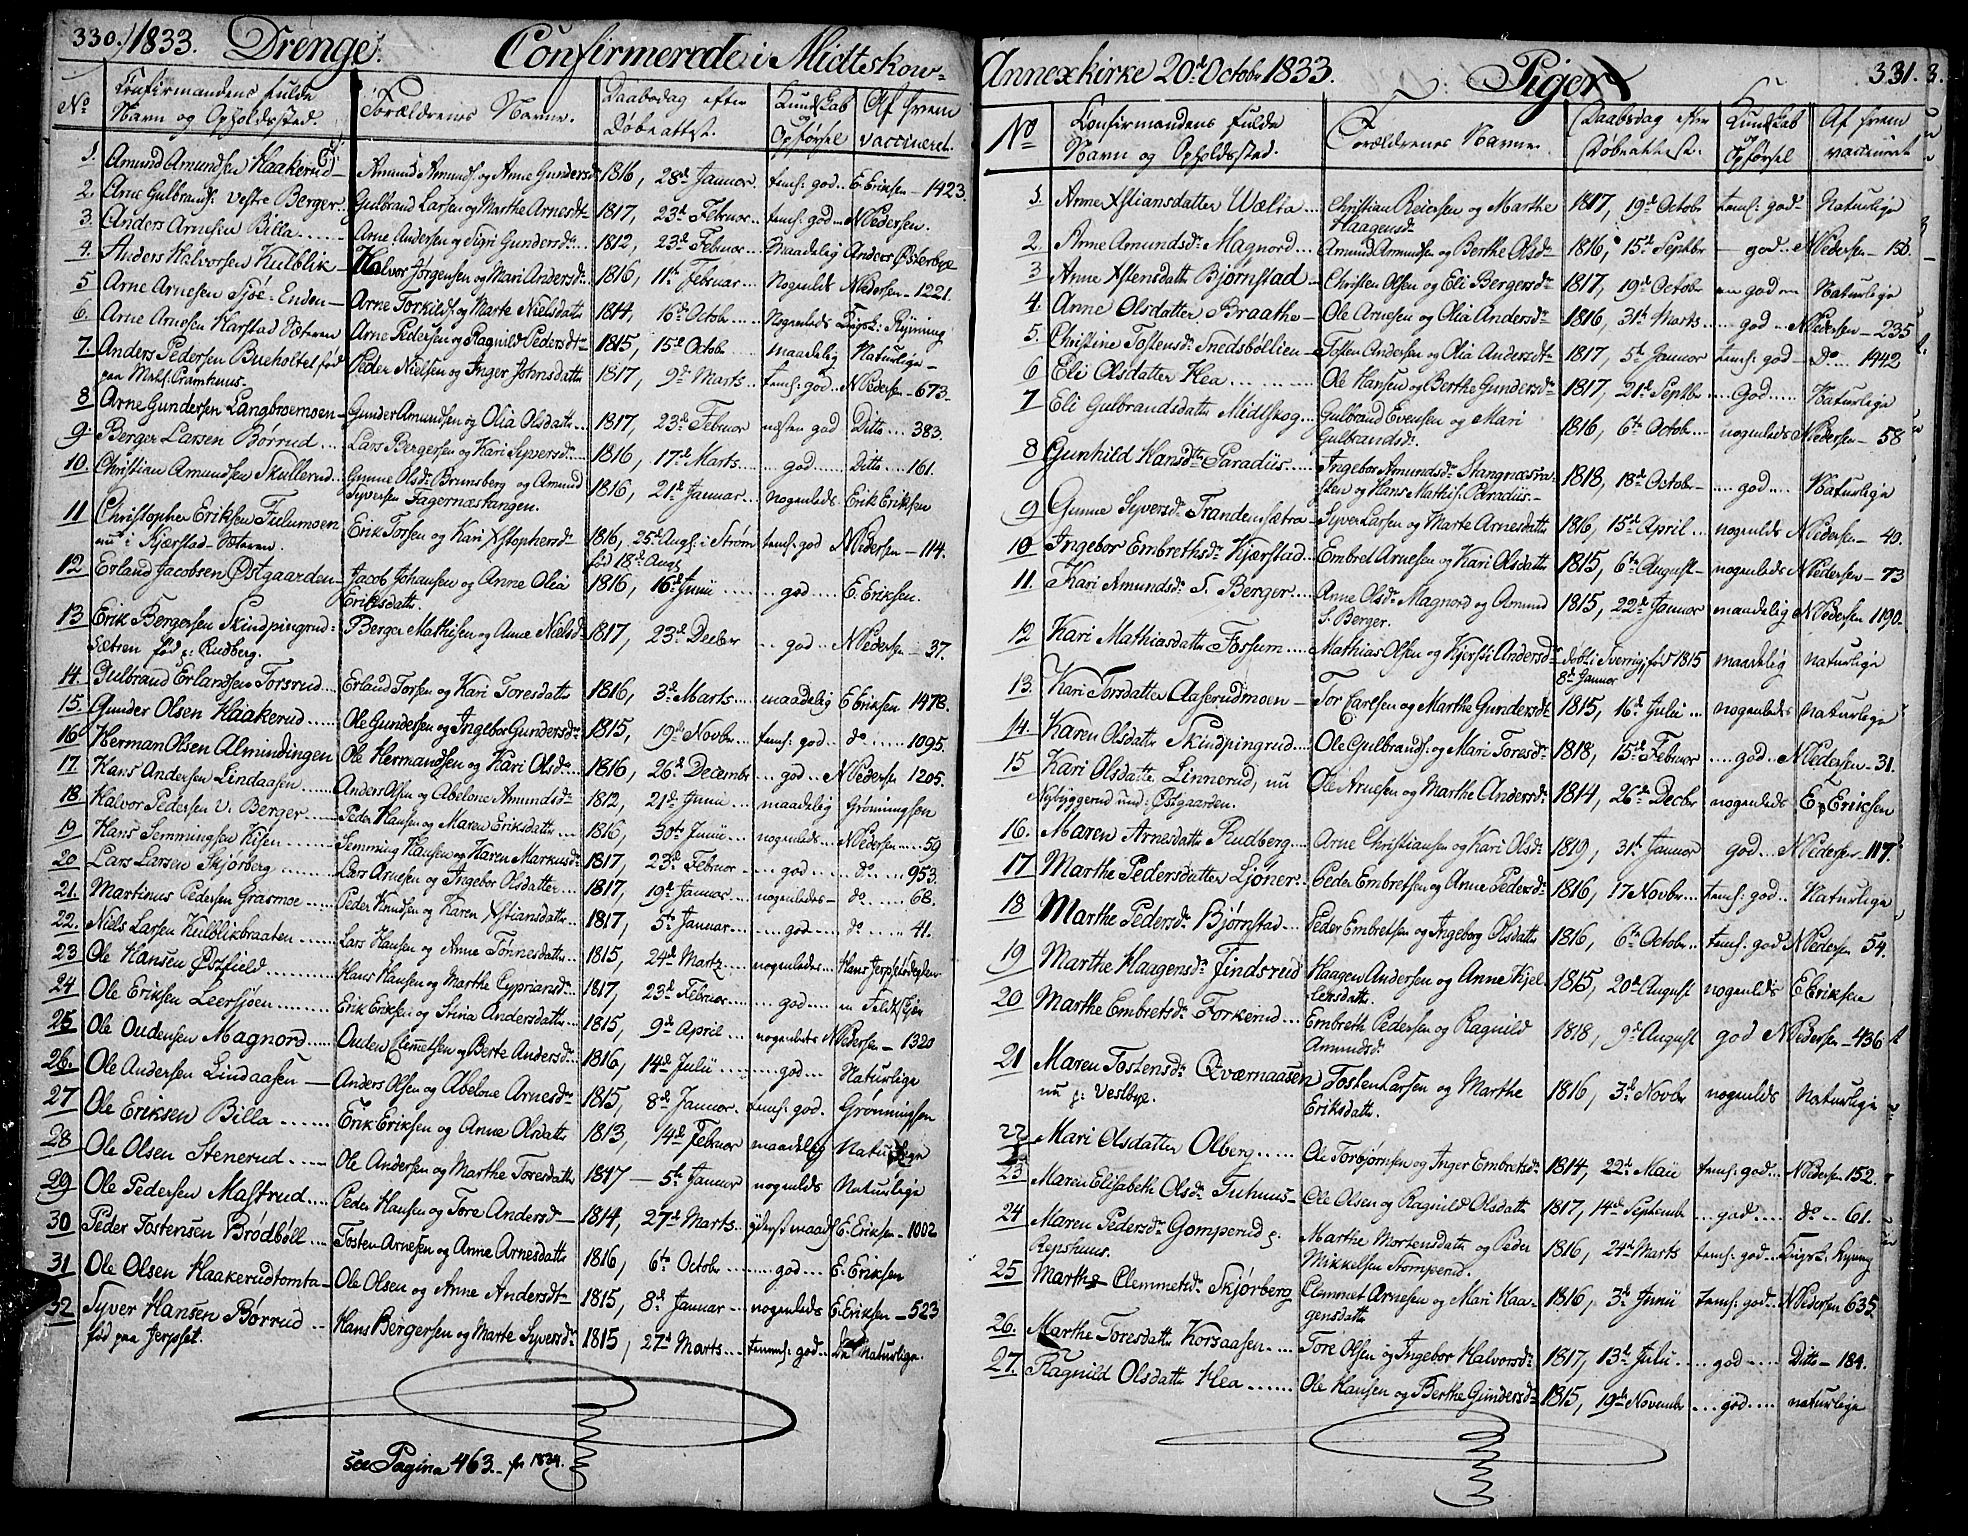 330. 1833. Drenge. Confirmerede i Midtskow-
No Confirmandens fulde Navn og Opholdssted. Forældrenes Navne. Daabsdag efter Døbeattest. Kundskab og Opførsel Af hvem vaccineret.
1. Amund Amundsen Haakerud Amund Amunds. og Anne Gundersd. 1816, 28de Januar tems: god E. Eriksen 1423
2. Arne Gulbrands. vestre Berger Gulbrand Larsen og Marthe Arnesdt. 1817, 23d Februar tems: god N Pedersen.
3. Anders Arnesen Billa Arne Andersen og Sigri Gundersdr. 1812, 23d Februar Maadelig Anders Østerbye
4. Anders Halvorsen Kulblik Halvor Jørgensen og Mari Andersdr. 1816, 11te Februar Nogenlds N Pedersen 1221.
5 Arne Arnesen Sjöe-Enden Arne Torkilds. og Marte Nielsdattr 1814, 16d Octob.
6. Arne Arnesen Harstad Sæteren Arne Pedersen og Ragnild Pedersdtr 1815, 15d Octobr maadelig Naturlige
7. Anders Pedersen Bueholtet fød Peder Nielsen og Inger Johnsdattr 1817, 9d Marts tems: god N Pedersen 673.
8 Arne Gundersen Langbroemoen Gunder Amundsen og Olia Olsdattr 1817, 23d Februar næsten god Ditto 383.
9. Berger Larsen Börrud Lars Bergersen og Kari Syversdr. 1816, 17d Marts god Ditto 161.
10. Christian Amundsen Skullerud Gunne Olsdr. Brunsberg og Amund 1816, 21d Januar nogenleds Erik Eriksen
Syversen Fagernæstangen.
11 Christopher Eriksen Fulumoen Erik Torsen og Kari Xstophersdr 1816, 25d Augs. i Strøm tems: god N Pedersen 114.
nu i Kjærstad-Sæteren. fød 18d Augs
12 Erland Jacobsen Østgaarden Jacob Johansen og Anne Olia 1816, 16d Junii god E. Eriksen.
Eriksdattr.
13 Erik Bergersen Skindpingrud- Berger Mathisen og Anne Nielsd. 1817, 23d Decbr god N Pedersen 37.
Sætren fød p: Rudberg.
14. Gulbrand Erlandsen Torsrud Erland Torsen og Kari Toresdattr 1816, 3d Marts maadelig E Eriksen 1478.
15. Gunder Olsen Haakerud Ole Gundersen og Ingebor Gundersdr. 1815, 19d Novbr tems: god do 1095.
16 Herman Olsen Almindingen Ole Hermandsen og Kari Olsd. 1816, 26d Decembr god N Pedersen 1205.
17 Hans Andersen Lindaasen Anders Olsen og Abelone Amundsdr 1812, 21d Junii maadelig Grönningsen
18 Halvor Pedersen V. Berger Peder Hansen og Maren Eriksdattr 1816, 30te Junii nogenlds N Pedersen 59
19 Hans Semmingsen Kisen Semming Hansen og Karen Markusdr. 1817, 23d Februar god do 953.
20 Lars Larsen Skjörberg Lars Arnesen og Ingebor Olsdatter 1817, 19d Januar nogenledes do 68.
21. Martinus Pedersen Grasmoe Peder Knudsen og Karen Xstiansdattr 1817, 5te Januar god do 41.
22. Niels Larsen Kulblikbraaten Lars Hansen og Anne Tönnesdattr 1815, 24d Martz nogenledes
23 Ole Hansen Østfield Hans Hansen og Marthe Cypriansdr. 1817, 23d Februar god
24 Ole Eriksen Leersjöen Erik Eriksen og Stina Andersdattr 1815, 9d April nogenlets N Pedersen 1320
25 Ole Oudensen Magnord Ouden Clemetsen og Berte Andersdr 1816, 14d Julii god Naturlige
26. Ole Andersen Lindaasen Anders Olsen og Abelone Arnesdr. 1815, 8de Januar tems: god. Grönningsen
27 Ole Eriksen Billa Erik Eriksen og Anne Olsdattr 1813, 14d Februar maadelig Naturlige
28 Ole Olsen Stenerud Ole Andersen og Marthe Toresdattr 1817 5te Januar nogenlds Naturlige
29 Ole Pedersen Mastrud Peder Hansen og Tore Andersd. 1814, 27d Marts yderst maad. E. Eriksen 1002
30 Peder Tostensen Brödböll Tosten Arnesen og Anne Arnesdattr 1816, 6te Octobr god E. Eriksen
31 Ole Olsen Haakerudtomta Ole Olsen og Anne Andersdt 1815, 8d Januar nogenleds E. Eriksen 523
32 Syver Hansen Börrud Hans Bergersen og Marte Syversdr. 1815, 27d Marts temms: god Naturlige.
fød paa Jerpset.
see Pagina 463. for 1834.
Annexkirke 20de Octobr 1833. Piger 331.
No Confirmandens fulde Navn og Opholdssted. Forældrenes Navne. Daabsdag efter Døbeattest. Kundskab Opførsel Af hvem vaccineret
1. Anne Xstiansdatter Wælia Christian Reiersen og Marthe 1817, 19d Octobr tems: god Naturlige
Haagensd.
2. Anne Amundsdr. Magnord Amund Amundsen og Berthe Olsd. 1816, 15d Septbr god N Pedersen 150.
3 Anne Xstensdattr Bjørnstad Christen Olsen og Eli Bergersdr. 1817, 19d Octobr god Naturlige
4. Anne Olsdatter Braathe Ole Arnesen og Olia Andersdr. 1816, 31te Marts god N Pedersen 235
5. Christine Tostensdr. Snedsböllien Tosten Andersen og Olia Andersdtr 1817, 5te Januar tems: god Do 1442
6 Eli Olsdatter Hea Ole Hansen og Berthe Gundersdr. 1817, 21d Septbr God Naturlige
7 Eli Gulbrandsdatter Midtskog Gulbrand Evensen og Mari 1816, 6te Octobr nogenleds N Pedersen 58
Gulbrandsd.
8 Gunhild Hansdtr Paradiis Ingebor Amundsdr. Stangnæs 1818, 18d Octobr god Naturlige
og Hans Mathis. Paradiis
9 Gunne Syversdr. Trandemsætra Syver Larsen og Marte Arnesdattr 1816, 15d April nogenlds N Pedersen 40.
10 Ingebor Embrethsdr. Kjærstad Embret Arnesen og Kari Olsdattr 1815, 6te August nogenleds N Pedersen 73
11. Kari Amundsdr. S. Berger Anne Olsdr. Magnord og Amund 1815, 22d Januar maadelig N Pedersen 1190.
S. Berger.
12 Kari Mathiasdattr Fossum Mathias Olsen og Kjersti Andersdr døbt i Sverrig fød 1815 maadelig naturlige
8de Januar
13. Kari Torsdatter Aaserudmoen Tor Carlsen og Marthe Gundersdt. 1815, 16d Julii nogenleds naturlige
14. Karen Olsdattr Skindpingrud Ole Gulbrands. og Mari Toresdr. 1818, 15d Februar god N Pedersen 31.
15 Kari Olsdattr. Linnerud, nu Ole Arnesen og Marthe Andersdr. 1814, 26d Decbr nogenleds E Eriksen
Nybyggerud und: Østgaarden.
16. Maren Arnesdattr Rudberg Arne Christiansen og Kari Olsdr. 1819, 31te Januar god N Pedersen 117.
17 Marthe Pedersdatter Ljöner Peder Embretsen og Anne Pedersdr. 1816, 17 Novbr tems: god Naturlige
18 Marthe Pedersdr. Bjørnstad Peder Embretsen og Ingeborg Olsdattr 1816, 6te Octobr tems: god N Pedersen 54.
19 Marthe Haagensdr. Findsrud Haagen Andersen og Anne Kjel- 1815, 20d August nogenlds E Eriksen
lersdattr.
20 Marthe Embretsdr. Forkerud Embreth Pedersen og Ragnild 1818, 9d August god N Pedersen 436
Amundsd.
21 Maren Tostensdr. Qværnaasen Tosten Larsen og Marthe 1816, 3d Novbr nogenlds Naturlige
nu p: Vestbye. Eriksdattr.
22 Mari Olsdatter Olberg Ole Torbjørnsen og Inger Embretsdr. 1814, 22d Maii tems: god N Pedersen 152.
23 Maren Elisabeth Olsdr. Tuhuus Ole Olsen og Ragnild Olsdattr 1817, 14d Septembr god do 61.
24 Maren Pedersdr. Gomperud p. Marthe Mortensdattr og Peder 1816, 24d Marts tems: god
Repshuus. Mikkelsen Stomperud.
25 Marthe Clemmetsdr. Skjørberg Clemmet Arnesen og Mari Haa- 1816, 3d Junii tems: god N Pedersen 635.
gensdattr
26. Marthe Toresdattr Korsaasen Tore Olsen og Ingebor Halvorsdr. 1817, 13d Julii god Ditto 184.
27. Ragnild Olsdattr Hea Ole Hansen og Berthe Gundersdr. 1815, 19d Novembr god naturlige